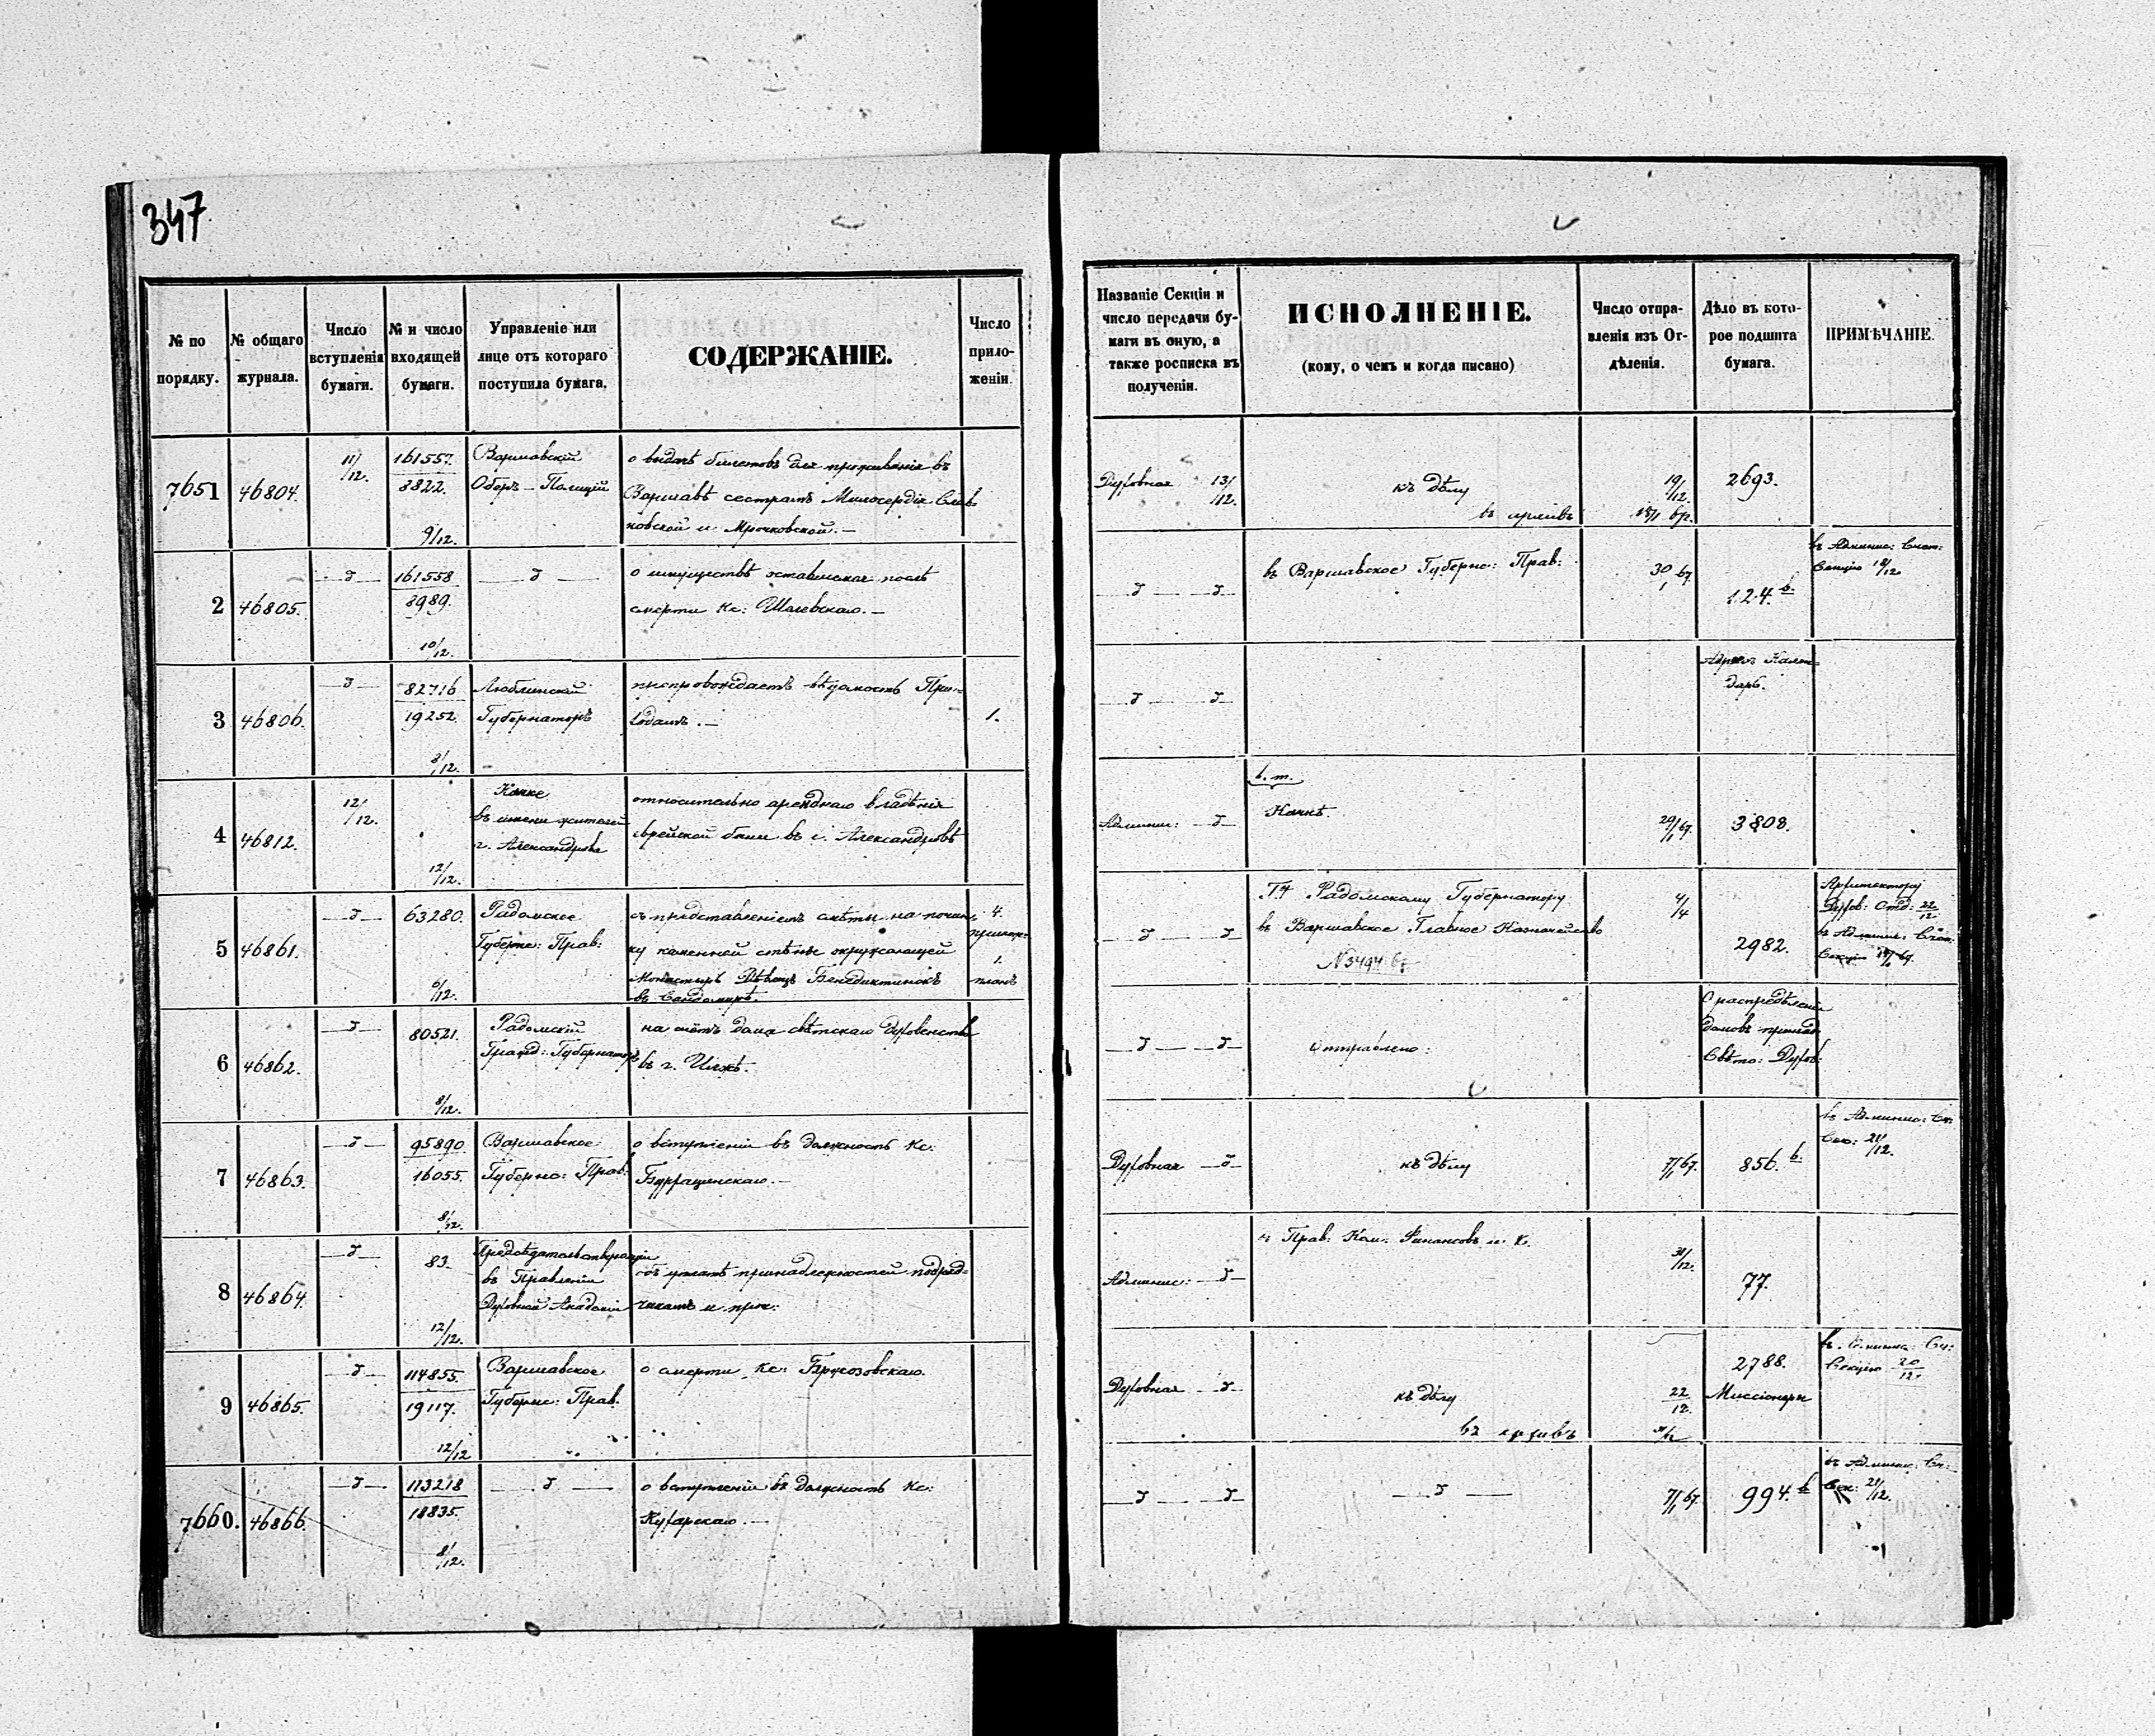 347
№ по порядку.
№ общаго журнала.
Число вступленія бумаги.
№ и число входящей бумаги.
Управленіе или лице отъ котораго поступила бумага.
СОДЕРЖАНІЕ.
Число прило- женіи.
Названіе Секціи и число передачи бу- маги въ оную, а также росписка въ полученіи.
ИСПОЛНЕНІЕ.
(кому, о чемъ и когда писано)
Число отпра- вленія изъ От- дѣленія.
Дѣло въ кото- рое подшита бумага.
ПРИМѢЧАНІЕ.
7651 46804. 11/12. 161557. 8822. 9/12.
Варшавскій
Оберъ-Полиціи
о выдачѣ билетовъ для проживанія въ
Варшавѣ сестрамъ Милосердія
и Мрочковской.—
Духовная 13/12.
къ дѣлу
въ архивъ
19/12.
2693.
2 46805. —д— 161558 8989. 10/12.
—д—
о имуществѣ оставшемся послѣ
смерти Кс:
—д— —д—
въ Варшавское Губернс: Прав:
30/1 67.
124. в.
въ Админис: Счет:
Секцію 18/12
3 46806. —д— 82716 19252. 8/12.
Люблинскій
Губернаторъ
препровождаетъ вѣдомость При-
ходамъ.—
1.
—д— —д—
4 46812. 12/12. 12/12.
въ имени жителей
г. Александрова
относительно аренднаго владѣнія
еврейской бани въ г. Александровѣ
Админис: —д—
в. т.
29/1 67.
3808.
5 46861. —д— 63280. 6/12.
Радомское
Губернс: Прав:
съ представленіемъ смѣты на почин-
ку каменной стѣны окружающей
Монастырь Дѣвицъ Бенедиктинокъ
въ Сандомирѣ.
4.
прилож:
1.
планъ
—д— —д—
Гну Радомскому Губернатору
въ Варшавское Главное Казначейство
N 3494 67
4/4
2982.
Архитектору
Духов: Отд: 22/12
въ Админис: Счет:
Секцію
6 46862. —д— 80521. 8/12.
Радомскій
Гражд: Губернаторъ
на счетъ дома свѣтскаго духовенства
въ г. Илжѣ.
—д— —д—
Отправлено:
О распредѣленіи
домовъ
Свѣтс: Духов:
7 46863. —д— 95890 16055. 8/12.
Варшавское
Губернс: Прав:
о вступленіи въ должность Кс:
Духовная —д—
къ дѣлу
7/1 67.
856. в.
въ Админис: Сч:
Сек: 21/12.
8 46864. —д— 83. 12/12.
Предсѣдательствующій
въ Правленіи
Духовной Академіи
объ уплатѣ принадлежностей подряд-
чикамъ и проч:
Админис: —д—
Прав: Ком: Финансовъ и К.
31/12.
77.
9 46865. —д— 114855. 19117. 12/12
Варшавское
Губернс: Прав.
о смерти Кс: Бржозовскаго.
Духовная —д—
къ дѣлу
въ архивъ
22/12.
2788.
Миссіонеры
Сч:
Секцію 20/12.
7660. 46866. —д— 113218 18835. 8/12.
—д—
о вступленіи въ должность Кс:
Кухарскаго.—
—д— —д—
—д—
7/1 67.
994. в
въ Админис: Сч:
Сек: 21/12.